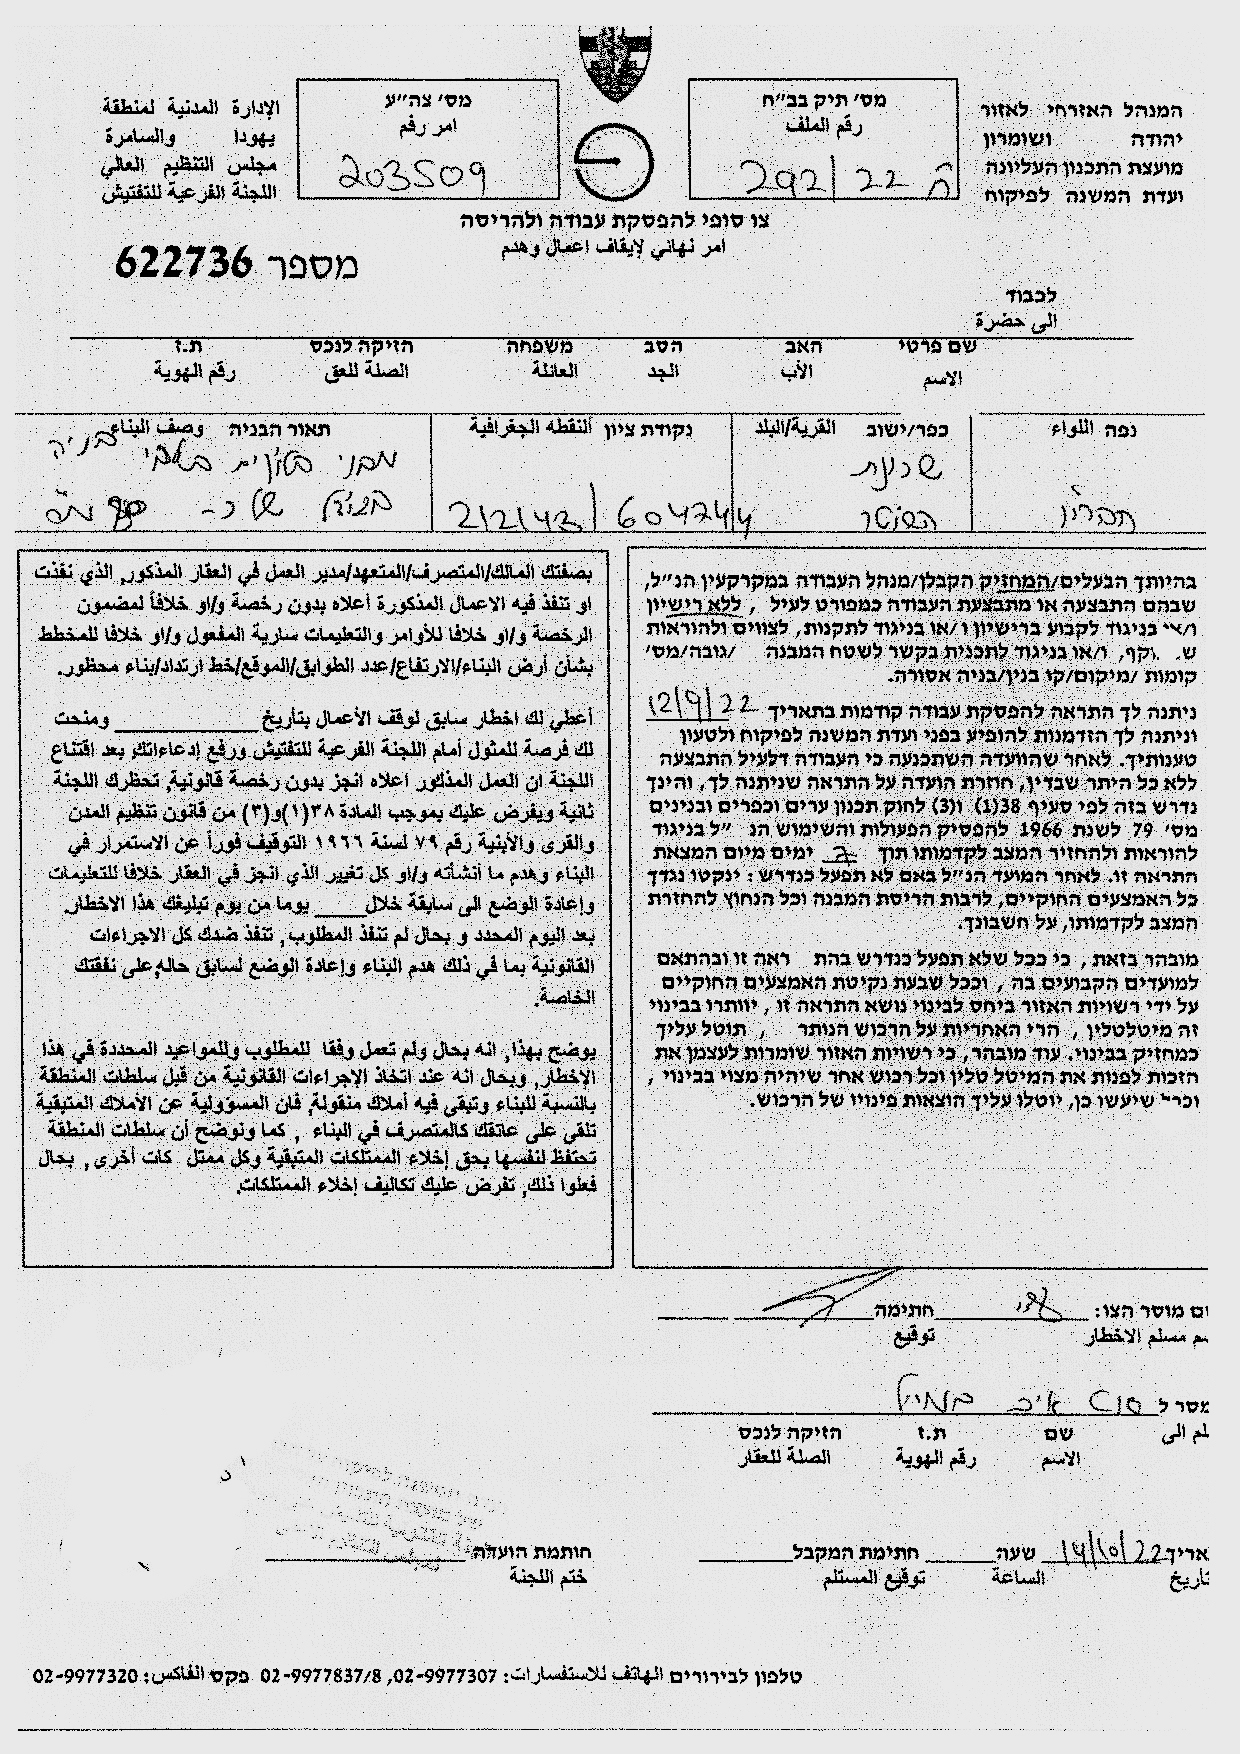 המנהל האזרחי לאזור
יהודה ושומרון
מועצת התכנון העליונה
ועדת המשנה לפיקוח
מס' תיק בב"ח
رقم الملف
292/22 ח
מס' צה"ע
امر رقم
203509
الإدارة المدنية لمنطقة
يهودا والسامرة
مجلس التنظيم العالي
اللجنة الفرعية للتفتيش
צו סופי להפסקת עבודה ולהריסה
امر نهائي لإيقاف اعمال وهدم
מספר 622736
לכבוד
الى حضرة
שם פרטי האב הסב משפחה הזיקה לנכס ת.ז
الاسم الأب الجد العائلة الصلة للعق رقم الهوية
נפה اللواء
כפר/ישוב القرية/البلد
נקודת ציון النقطه الجغرافية
תאור הבניה وصف البناء
חברון
שכונת
212143/604744
מבני
בגודל של כ-
בהיותך הבעלים/המחזיק הקבלן/מנהל העבודה במקרקעין הנ"ל,
שבהם התבצעה או מתבצעת העבודה כמפורט לעיל, ללא רישיון
ו/או בניגוד לקבוע ברישיון ו/או בניגוד לתקנות, לצווים ולהוראות
קף, ו/או בניגוד לתכנית בקשר לשטח המבנה /גובה/מס'
קומות /מיקום/קו בנין/בניה אסורה.
ניתנה לך התראה להפסקת עבודה קודמות בתאריך 12/9/22
וניתנה לך הזדמנות להופיע בפני ועדת המשנה לפיקוח ולטעון
טענותיך. לאחר שהוועדה השתכנעה כי העבודה דלעיל התבצעה
ללא כל היתר שבדין, חוזרת הועדה על התראה שניתנה לך, והינך
נדרש בזה לפי סעיף 38(1) ו(3) לחוק תכנון ערים וכפרים ובנינים
מס' 79 לשנת 1966 להפסיק הפעולות והשימוש הנ"ל בניגוד
להוראות ולהחזיר המצב לקדמותו תוך 7 ימים מיום המצאת
התראה זו. לאחר המועד הנ"ל באם לא תפעל כנדרש: ינקטו נגדך
כל האמצעים החוקיים, לרבות הריסת המבנה וכל הנחוץ להחזרת
המצב לקדמותו, על חשבונך.
מובהר בזאת, כי ככל שלא תפעל כנדרש בהת ראה זו ובהתאם
למועדים הקבועים בה, וככל שבעת נקיטת האמצעים החוקיים
על ידי רשויות האזור ביחס לבינוי נושא התראה זו, יוותרו בבינוי
זה מיטלטלין, הרי האחריות על הרכוש הנותר, תוטל עליך
כמחזיק בבינוי. עוד מובהר, כי רשויות האזור שומרות לעצמן את
הזכות לפנות את המיטל טלין וכל רכוש אחר שיהיה מצוי בבינוי,
וככל שיעשו כן, יוטלו עליך הוצאות פינויו של הרכוש.
بصفتك المالك/المتصرف/المتعهد/مدير العمل في العقار المذكور, الذي نفذت
او تنفذ فيه الاعمال المذكورة أعلاه بدون رخصة و/او خلافاً لمضمون
الرخصة و/او خلافا للأوامر والتعليمات سارية المفعول و/او خلافا للمخطط
بشأن أرض البناء/الارتفاع/عدد الطوابق/الموقع/خط ارتداد/بناء محظور.
أعطي لك اخطار سابق لوقف الأعمال بتأريخ ______ ومنحت
لك فرصة للمثول أمام اللجنة الفرعية للتفتيش ورفع إدعاءاتك, بعد اقتناع
اللجنة ان العمل المذكور اعلاه انجز بدون رخصة قانونية, تحظرك اللجنة
ثانية ويفرض عليك بموجب المادة ٣٨(١)و(٣) من قانون تنظيم المدن
والقرى والأبنية رقم ٧٩ لسنة ١٩٦٦ التوقيف فوراً عن الاستمرار في
البناء وهدم ما أنشأته و/او كل تغيير الذي انجز في العقار خلافا للتعليمات
وإعادة الوضع الى سابقة خلال____ يوما من يوم تبليغك هذا الاخطار.
بعد اليوم المحدد و بحال لم تنفذ المطلوب, تنفذ ضدك كل الاجراءات
القانونية بما في ذلك هدم البناء وإعادة الوضع لسابق حاله,على نفقتك
الخاصة.
يوضح بهذا, انه بحال ولم تعمل وفقا للمطلوب وللمواعيد المحددة في هذا
الإخطار, وبحال انه عند اتخاذ الاجراءات القانونية من قبل سلطات المنطقة
بالنسبة للبناء وتبقى فيه أملاك منقولة, فان المسؤولية عن الأملاك المتبقية
تلقى على عاتقك كالمتصرف في البناء , كما ونوضح أن سلطات المنطقة
تحتفظ لنفسها بحق إخلاء الممتلكات المتبقية وكل ممتل كات أخرى, بحال
فعلوا ذلك, تفرض عليك تكاليف إخلاء الممتلكات.
ום מוסר הצו: חתימה
م مسلم الاخطار توقيع
מסר ל
لم الى
שם ת.ז הזיקה לנכס
الاسم رقم الهوية الصلة للعقار
אריך 14/10/22 שעה חתימת המקבל חותמת הועדה
تاريخ الساعة توقيع المستلم ختم اللجنة
טלפון לבירורים الهاتف للاستفسارات: 02-9977307, 02-9977837/8 פקס الفاكس: 02-9977320